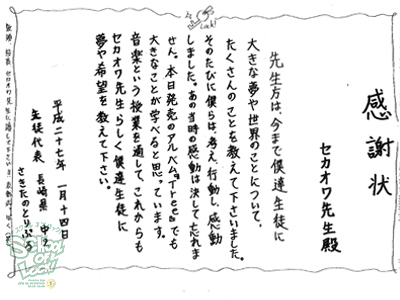 感謝状
セカオワ先生殿
先生方は、今まで僕達生徒に
大きな夢や世界のことについて、
たくさんのことを教えて下さいました。
そのたびに僕らは、考え、行動し、感動
しました。あの当時の感動は決して忘れま
せん。本日発売のアルバム『Tree』でも
大きなことが学べると思っています。
音楽という授業を通して、これからも
セカオワ先生らしく僕達生徒に
夢や希望を教えて下さい。
平成二十七年 一月十四日
生徒代表 長崎県 中2
さきたのとりぷる
School
of
Lock!